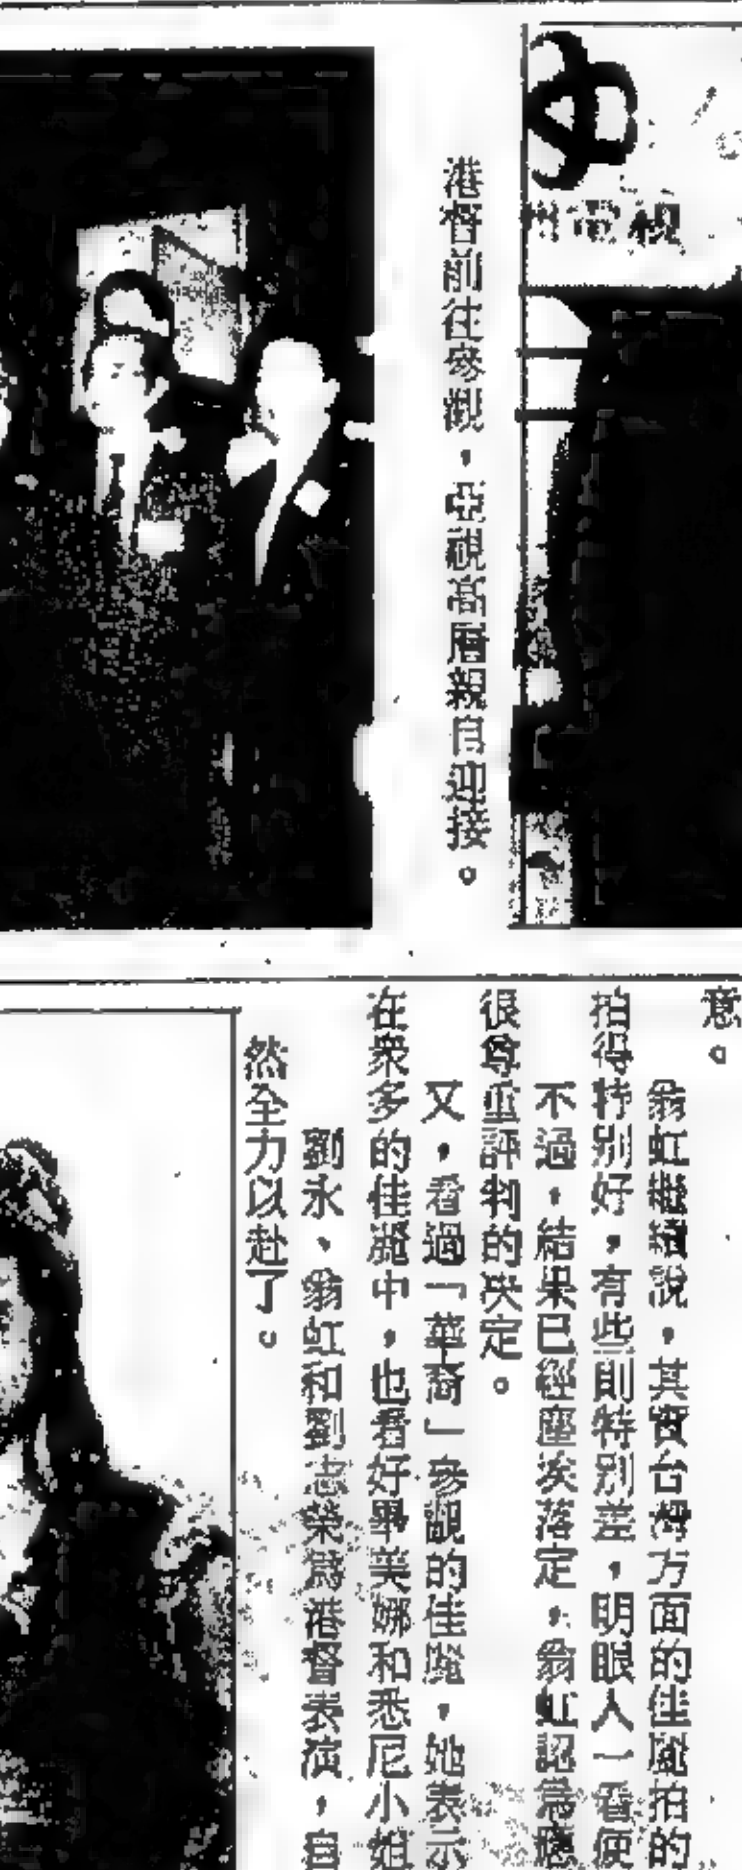 州電視
港督前往參觀，亞視高層親自迎接。
意。
翁虹繼續說，其實台灣方面的佳麗拍的
拍得特別好，有些則特別差，明眼人一看便
不過，結果已經塵埃落定，翁虹認為應
很尊重評判的決定。
又，看過「華裔」參觀的佳麗，她表示
在衆多的佳麗中，也看好畢美娜和悉尼小姐
劉永、翁虹和劉志榮為港督表演，自
然全力以赴了。